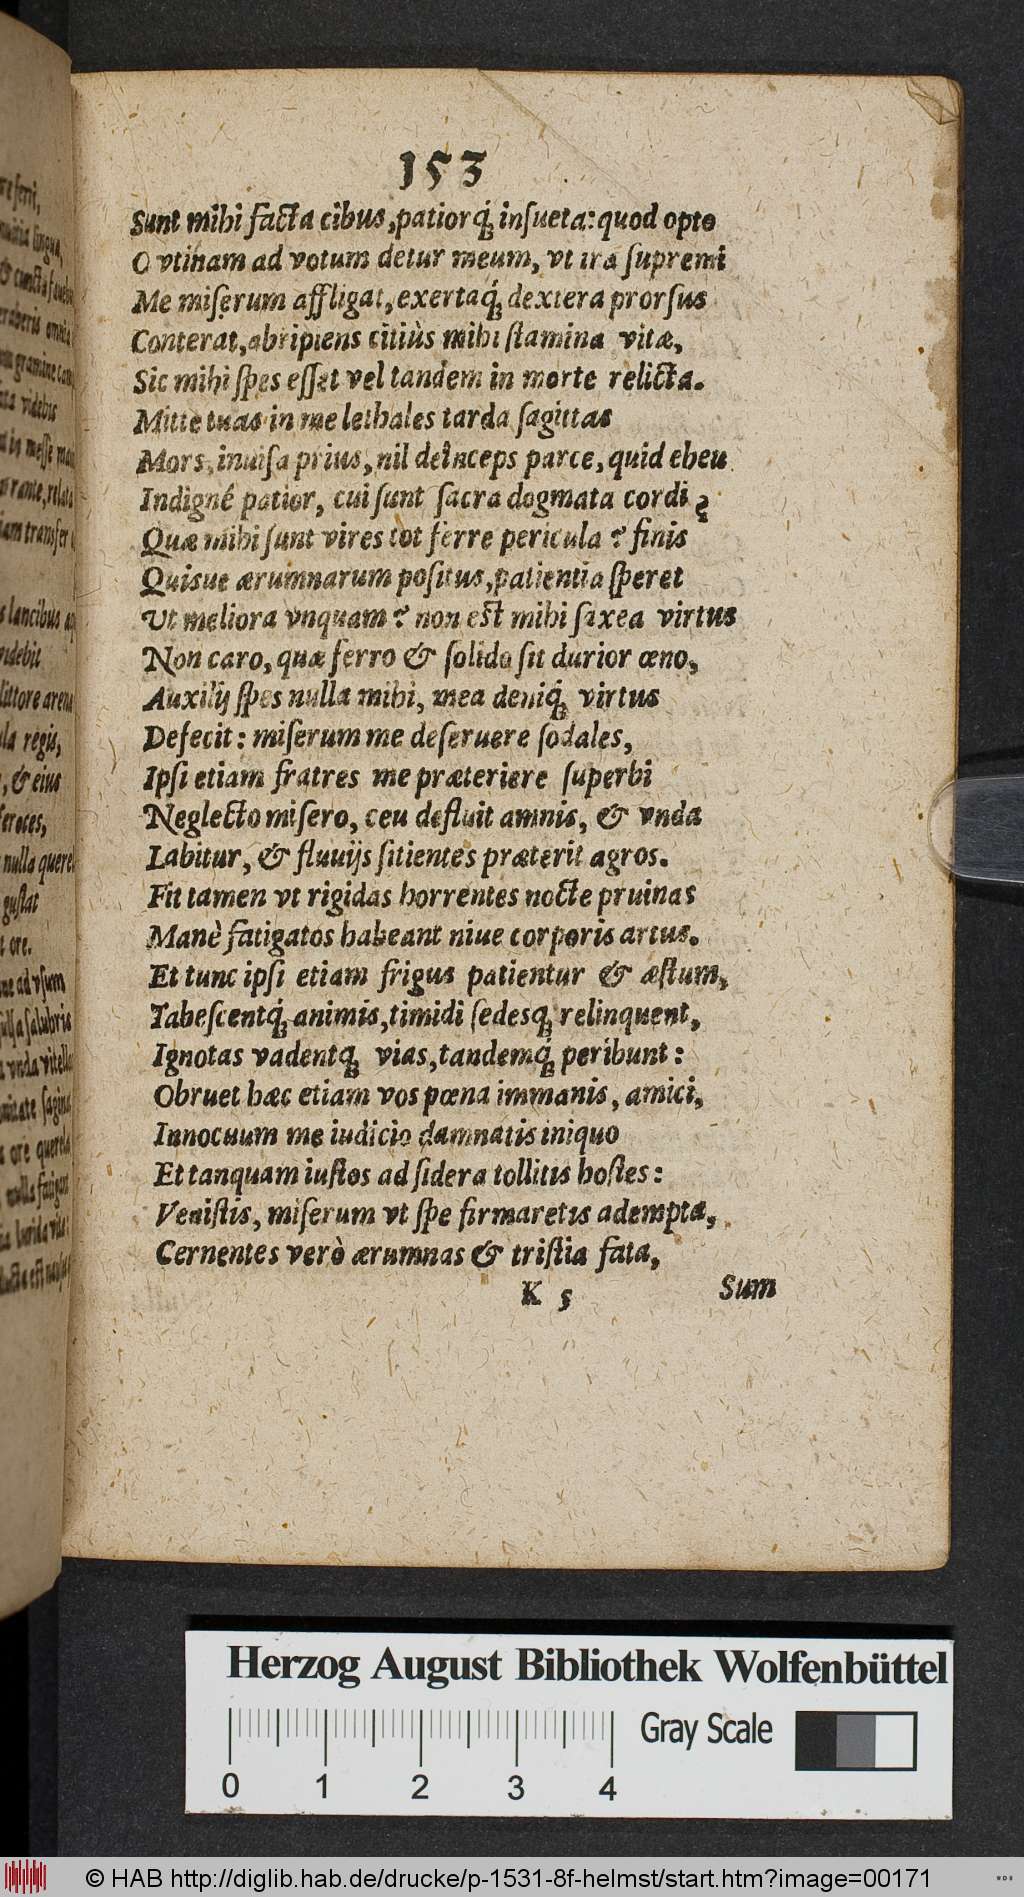 153
Sunt mihi facta cibus, patiorq́; insueta: quod opto
O vtinam ad votum detur meum, vt ira supremi
Me miserum affligat, exertaq́; dextera prorsus
Conterat, abripiens citiùs mihi stamina vitæ,
Sic mihi spes esset vel tandem in morte relicta.
Mitte tuas in me lethales tarda sagittas
Mors, inuisa prius, nil deinceps parce, quid eheu
Indignè patior, cui sunt sacra dogmata cordi?
Quæ mihi sunt vires tot ferre pericula? finis
Quisue ærumnarum positus, patientia speret
Ut meliora vnquam? non est mihi saxea virtus
Non caro, quæ ferro & solido sit durior œno,
Auxilij spes nulla mihi, mea deniq́; virtus
Defecit: miserum me deseruere sodales,
Ipsi etiam fratres me præteriere superbi
Neglecto misero, ceu defluit amnis, & vnda
Labitur, & fluuijs sitientes præterit agros.
Fit tamen vt rigidas horrentes nocte pruinas
Manè fatigatos habeant niue corporis artus.
Et tunc ipsi etiam frigus patientur & æstum,
Tabescentq́; animis, timidi sedesq; relinquent,
Ignotas vadentq; vias, tandemq́; peribunt:
Obruet hæc etiam vos pœna immanis, amici,
Innocuum me iudicio damnatis iniquo
Et tanquam iustos ad sidera tollitis hostes:
Venistis, miserum vt spe firmaretis adempta,
Cernentes verò ærumnas & tristia fata,
K 5 Sum
re ferri,
lingua,
& cuncta
gramine
videbis
in messe
transfer
lancibus
videbit
littore arena
regis,
, & eius
feroces,
nulla quere
gustat
ore.
ad vsum
salubris
vnda
ore querela
Herzog August Bibliothek Wolfenbüttel
0 1 2 3 4
Gray Scale
© HAB http://diglib.hab.de/drucke/p-1531-8f-helmst/start.htm?image=00171